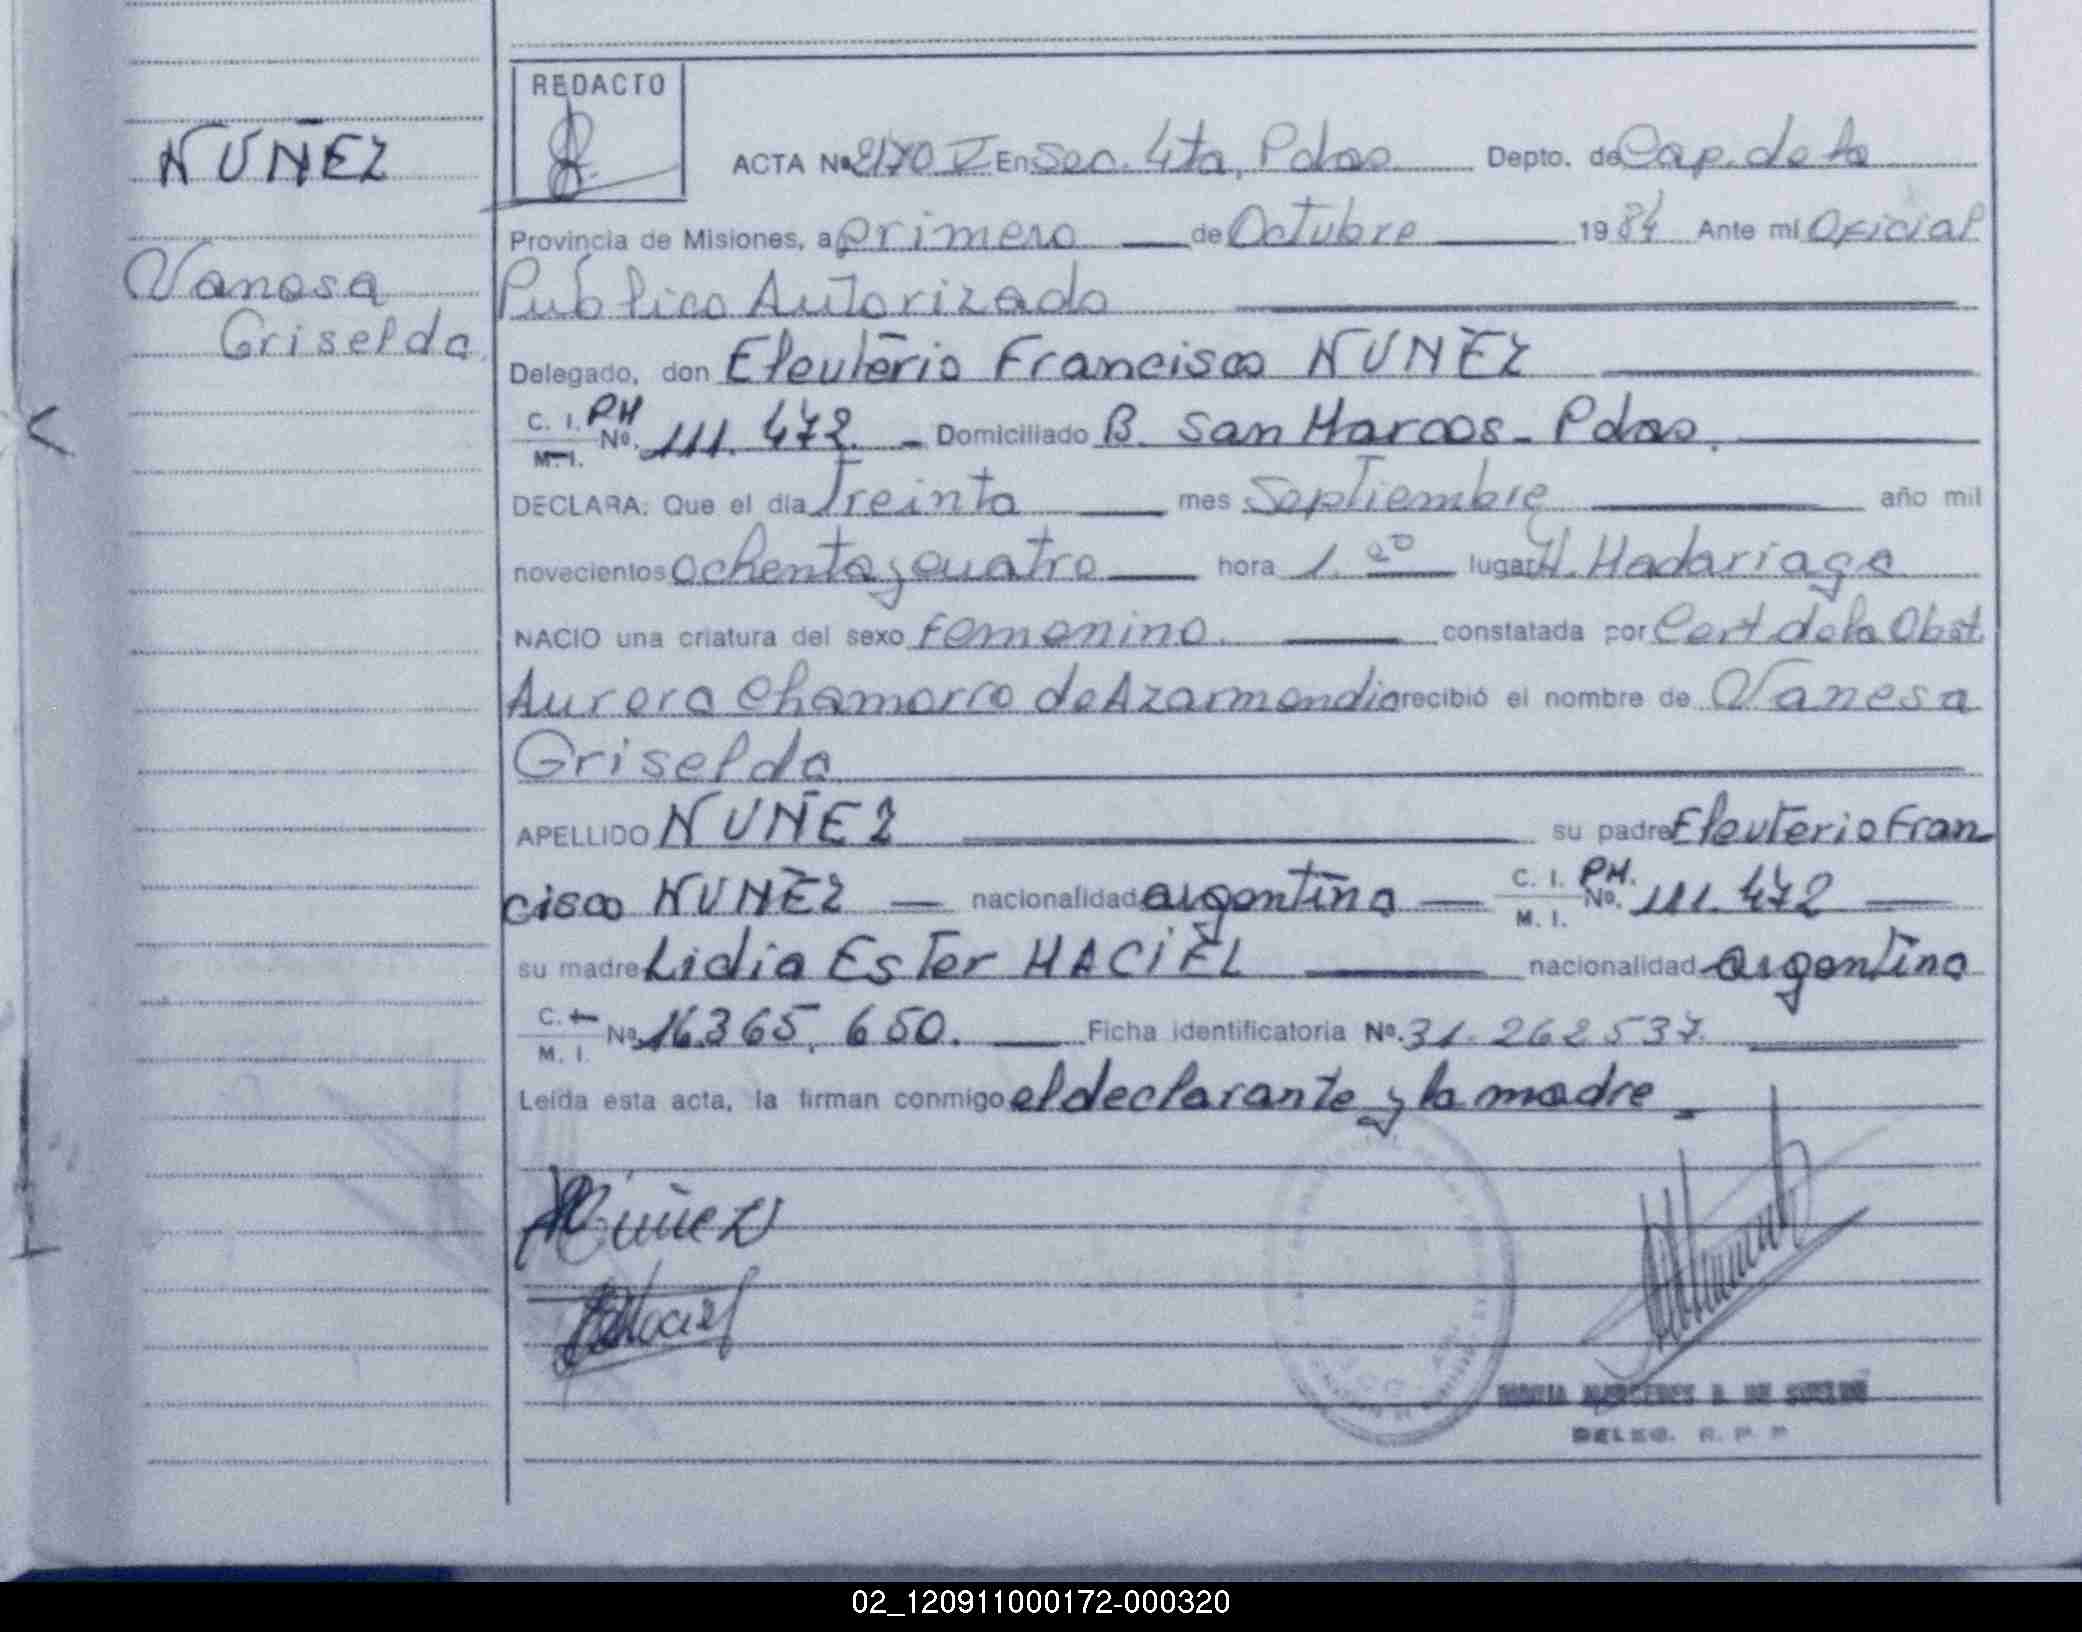 REDACTO
NUÑEZ
ACTA Nº 2170 V En Sec. 4ta, Pdas. Depto. de Cap. de la
Provincia de Misiones, a primero de Octubre 1984 Ante mi Oficial
Vanesa
Griselda
Público Autorizado
Delegado, don Eleuterio Francisco NUÑEZ
C. I. PM
M. I. Nº. 111.472. Domiciliado B. San Marcos - Pdas.
DECLARA: Que el día Treinta mes Septiembre año mil
novecientos ochenta y cuatro hora 1.20 lugar H. Madariaga
NACIO una criatura del sexo femenino. constatada por Cert de la Obst.
Aurora Chamorro de Azarmendia recibió el nombre de Vanesa
Griselda
APELLIDO NUÑEZ su padre Eleuterio Fran
cisco NUÑEZ nacionalidad argentina C. I. PM.
M. I. Nº. 111.472
su madre Lidia Ester MACIEL nacionalidad argentina
C. I.
M. I. Nº 16.365.650. Ficha identificatoria Nº. 31.262537.
Leída esta acta, la firman conmigo el declarante y la madre
DELEG. R. P. P
02_120911000172-000320